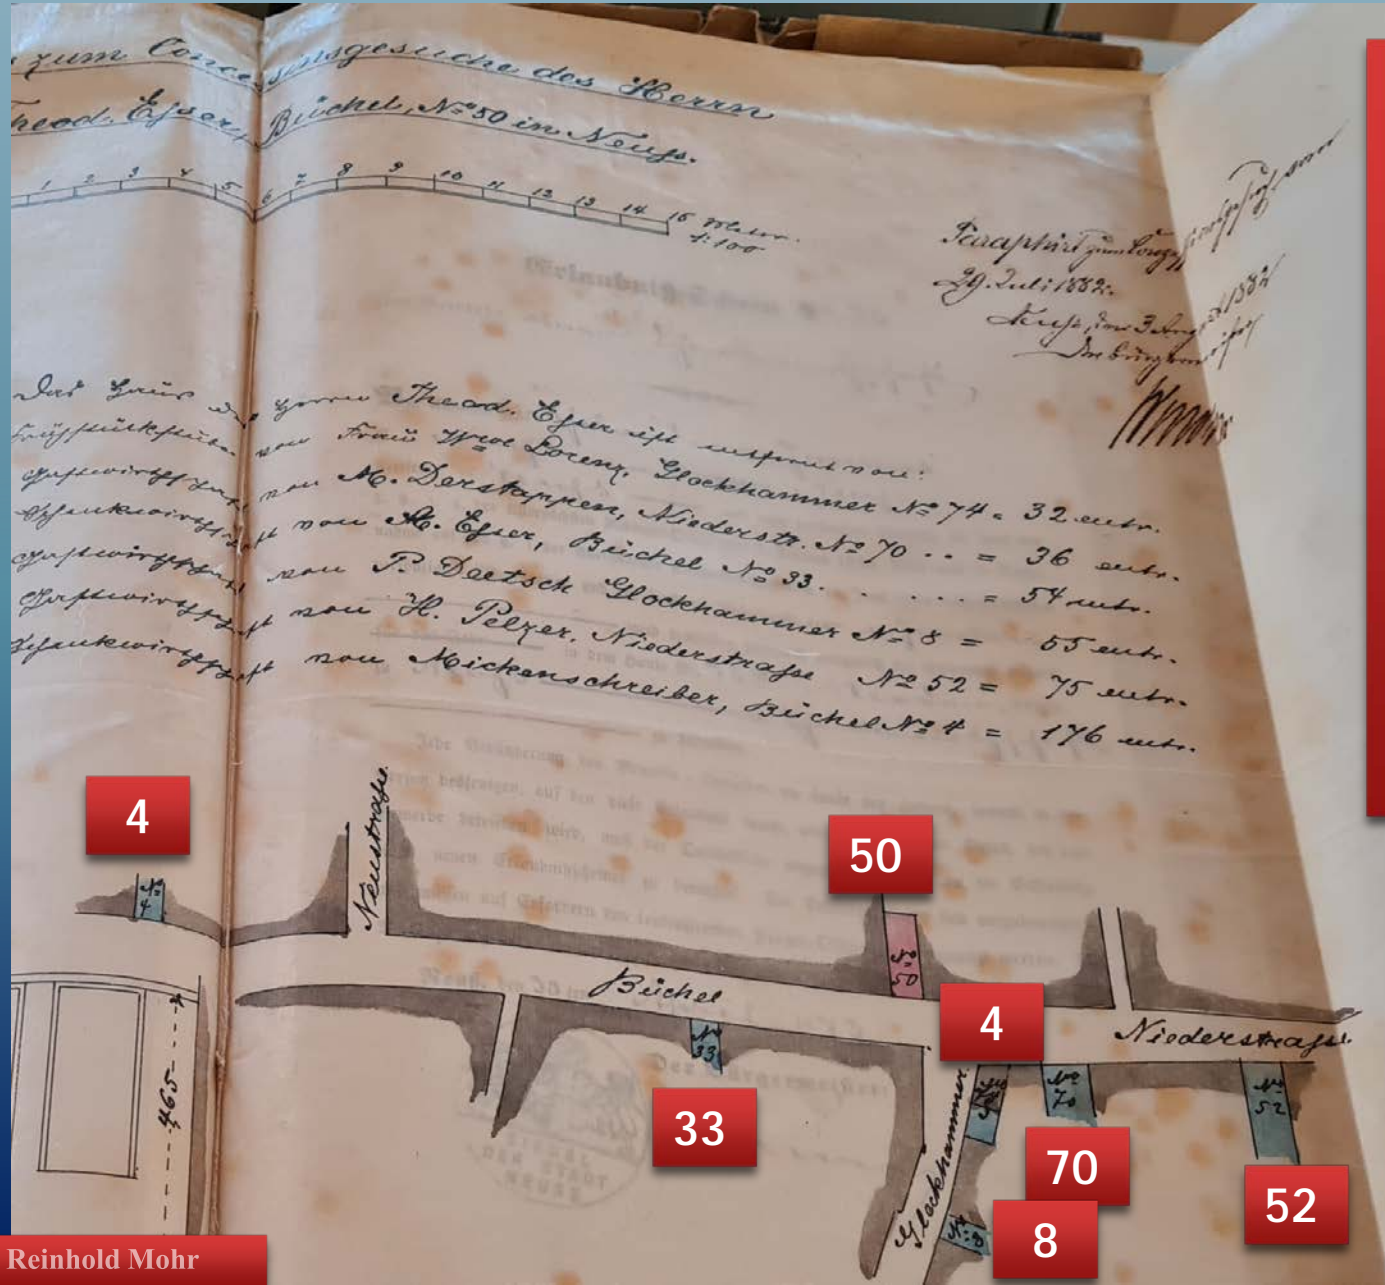 zum Concessionsgesuche des Herrn
Theod. Esser, Büchel, No 50 in Neuss.
1 2 3 4 5 6 7 8 9 10 11 12 13 14 15 Meter.
1:100
Paraphirt zum
29. Juli 1882.
Neuss, den 3 August 1882
Der Bürgermeister
Das Haus des Herrn Theod. Esser ist entfernt von:
Frühstückstube von Frau Wwe Lorenz, Glockhammer No 74 = 32 mtr.
Gastwirthschaft von M. Derstappen, Niederstr. No 70 . . = 36 mtr.
Schankwirthschaft von M. Esser, Büchel No 33. . . . . . = 54 mtr.
Gastwirthschaft von P. Deetsch Glockhammer No 8 = 55 mtr.
Gastwirthschaft von H. Pelzer, Niederstrasse No 52 = 75 mtr.
Schankwirthschaft von Mickenschreiber, Büchel No 4 = 176 mtr.
4
50
Neustrasse.
No 4
No 50
Büchel
4
Niederstrasse.
No 33
No 70
No 52
465
33
Glockhammer.
70
52
No 8
8
Der Bürgermeister:
SIEGEL
DER STADT
NEUSS
Reinhold Mohr